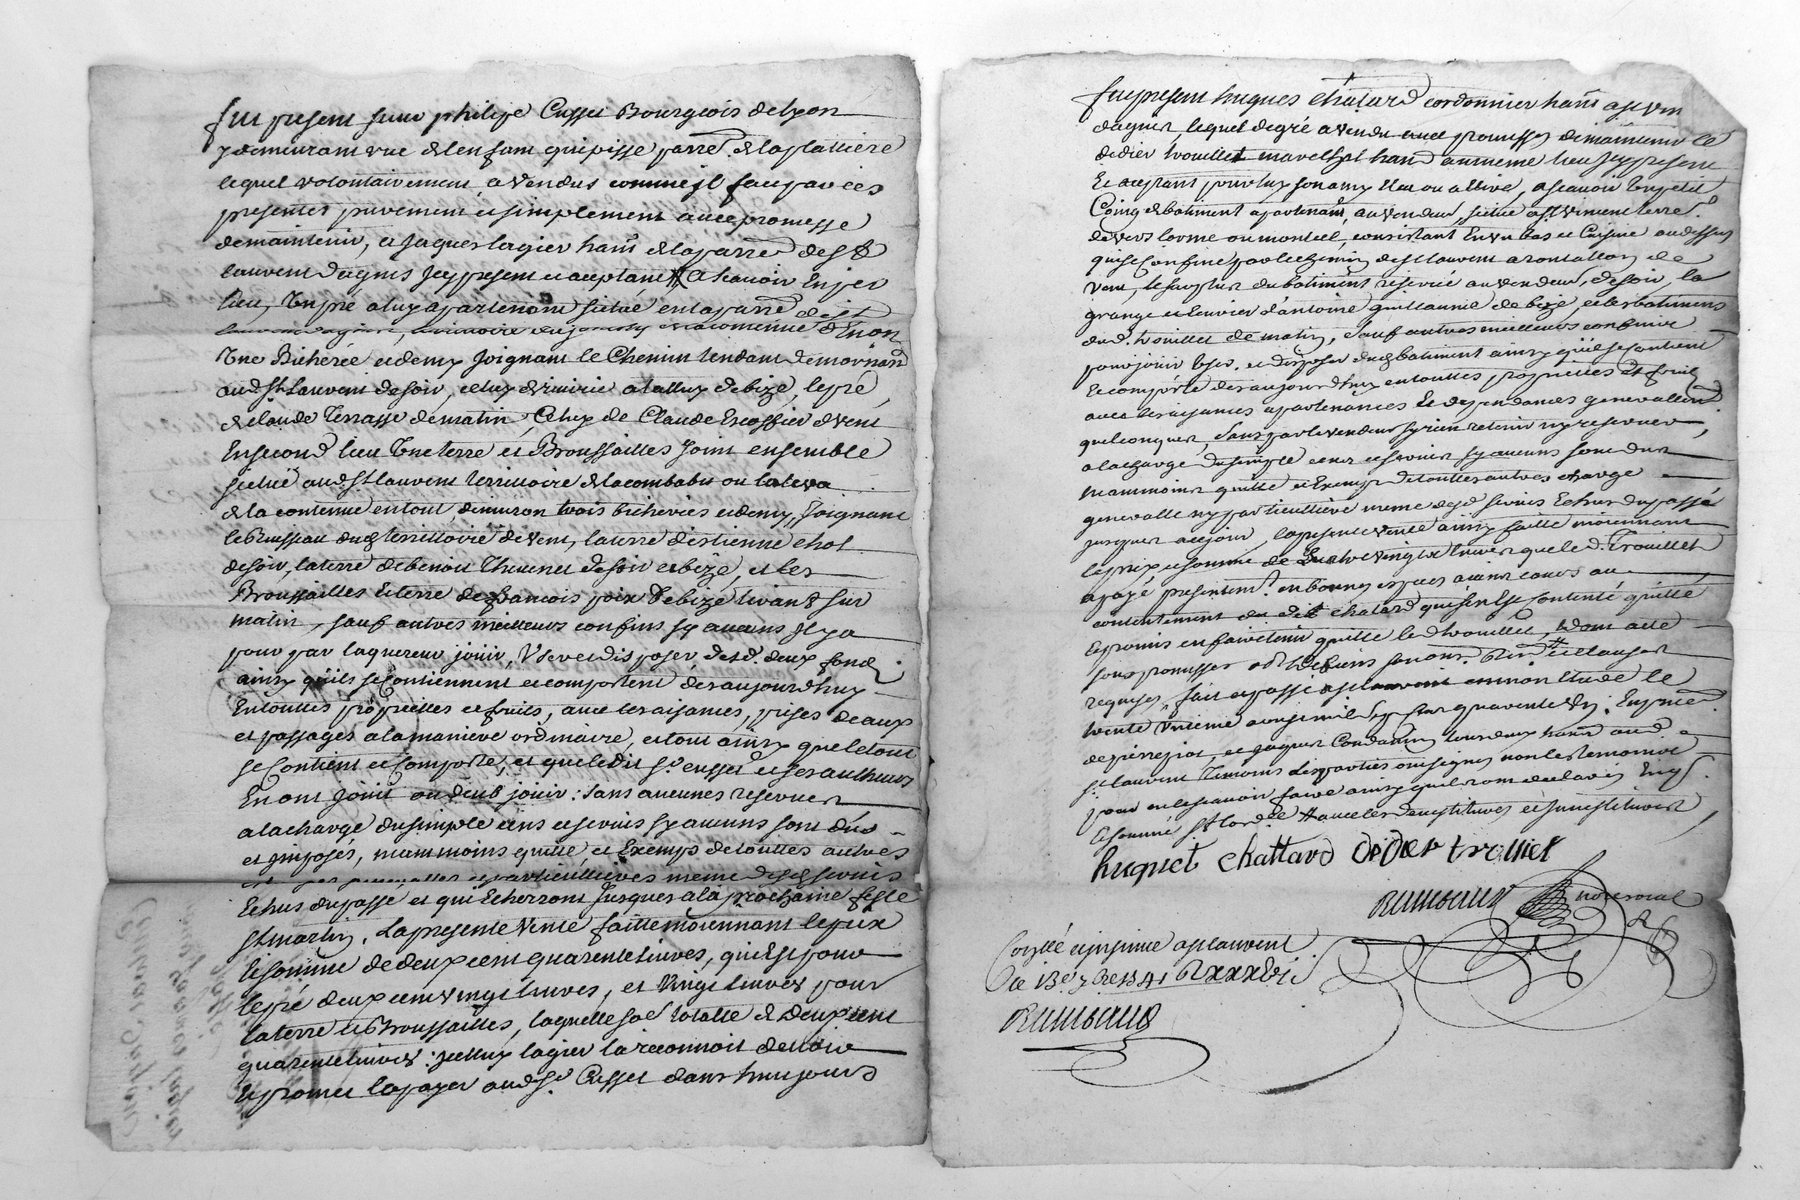 fut present sieur philipe Cusset Bourgeois de lyon
y demeurant rue de lenfant qui pisse parr.e de la platiere
lequel volontairement, a vendus comme il fait par ces
presentes purement et simplement avec promesse
de maintenir, a Jaques lagier hant de la parre de St
laurent dagnis jcy present et aceptant Ascavoir En per
lieu, Un pré a luy apartenant situé en la parre de St
laurent dagnis, de la contenue d'Environ
Une Bicherée et demy Joignant le Chemin tendant de mornand
aud St laurent de soir, celuy de bize, le pré
de Claude Terrasse de matin, Celuy de Claude Escoffier de vent
En second lieu Une terre et Broussailles Joint ensemble
situé aud St laurent territoire de la combabu ou
de la contenue en tout, denviron trois bicherées et demy, Joignant
le Ruisseau dud territoire de vent, la terre d'estienne chol
de soir, la terre de benoit Thevenet de soir et bize, et les
Broussailles et terre de francois poix de bize tirant sur
matin, sauf autres meilleurs confins sy aucuns Il y a
pour par laquereur jouir, User et disposer desd. deux fonds
ainsy quils se Contiennent et comportent des aujourdhuy
En touttes proprietes et fruits, avec les aisances, prises deaux
et passages a la maniere ordinaire, et tout ainsy que le tout
se Contient et Comporte, et que ledit Sr cusset et ses autheurs
En ont Joüit ou deub joüir: sans aucunes reserves
a la charge du simple cens et servis sy aucuns sont dus
et jmposés, neammoins quitte, et Exempt de touttes autres
generalles et particullieres meme desd servis
Echus du passé et qui Echerront Jusques a la prochaine feste
St martin. La presente Vente faitte moiennant le prix
Et somme de deux cent quarente livres, qui Est pour
le pré deux cent vingt livres, et Vingt livres pour
la terre et Broussailles, laquelle so.e totalle de deux cent
quarente livres: jcelluy lagier la reconnoit devoir
Et promet la payer aud Sr. Cusset dans huit jours
fut present hugues chatard cordonnier hant a St Vin
dagnis lequel de gré a vendu avec promesse de maintenir le
didier trouillet marechal hant au meme lieu jcy present
Et aceptant pour luy son amy Elu ou a Elire, ascavoir Un petit
Coing de batiment apartenant, au vendeur, situé a St Vincent terre.
devers lorme ou montcel, consistant En Un bas et Cuisine au dessus
qui se Confine par le chemin de St laurent a rontallon de
vent, le surplus du batiment reservé au vendeur de soir, la
grange et Cuvier d'antoine guillaumé de bize, et les batiments
dud. trouillet de matin, sauf autres meilleurs confins
pour jouir User et disposer dud batiment ainsy quil se Contient
Et comporte des aujourdhuy en touttes proprietes et fruits
avec les aisances apartenances Et dependances generallement
quelconques, sans par le vendeur sy rien retenir ny reserver,
a la charge du simple cens et servis sy aucuns sont dus
neammoins quitte et Exempt de touttes autres charge
generalle ny particulliere meme desd servis Echus du passé
jusques au jour, la presente vente ainsy faitte moiennant
le prix et somme de Quatre vingt livres que led. Trouillet
a payé presentemt. en bonnes especes aiant cours au
contentement du dit chatard qui sen Est Contenté quitté
Et promis en faire tenir quitte led trouillet, dont acte
sous promesses obligations et clauses
requises, fait et passé a St laurent en mon Etude le
trente Unieme aoust mil sept cent quarente Un. En presce.
de pierre piot, et Jaques Condamin tous deux hants aud.
St laurent Temoins Les parties ont signés non les temoins
pour ne le scavoir faire ainsy quils ont declarés Enqs.
Et sommé St lordce # avec les devestitures et jnvestitures
huguet Chattard didier trolliet
Rambaud no.re royal
Con.llé et jnsinué a St laurent
ce 13e 7bre 1741 R xxxvi s
Rambaud